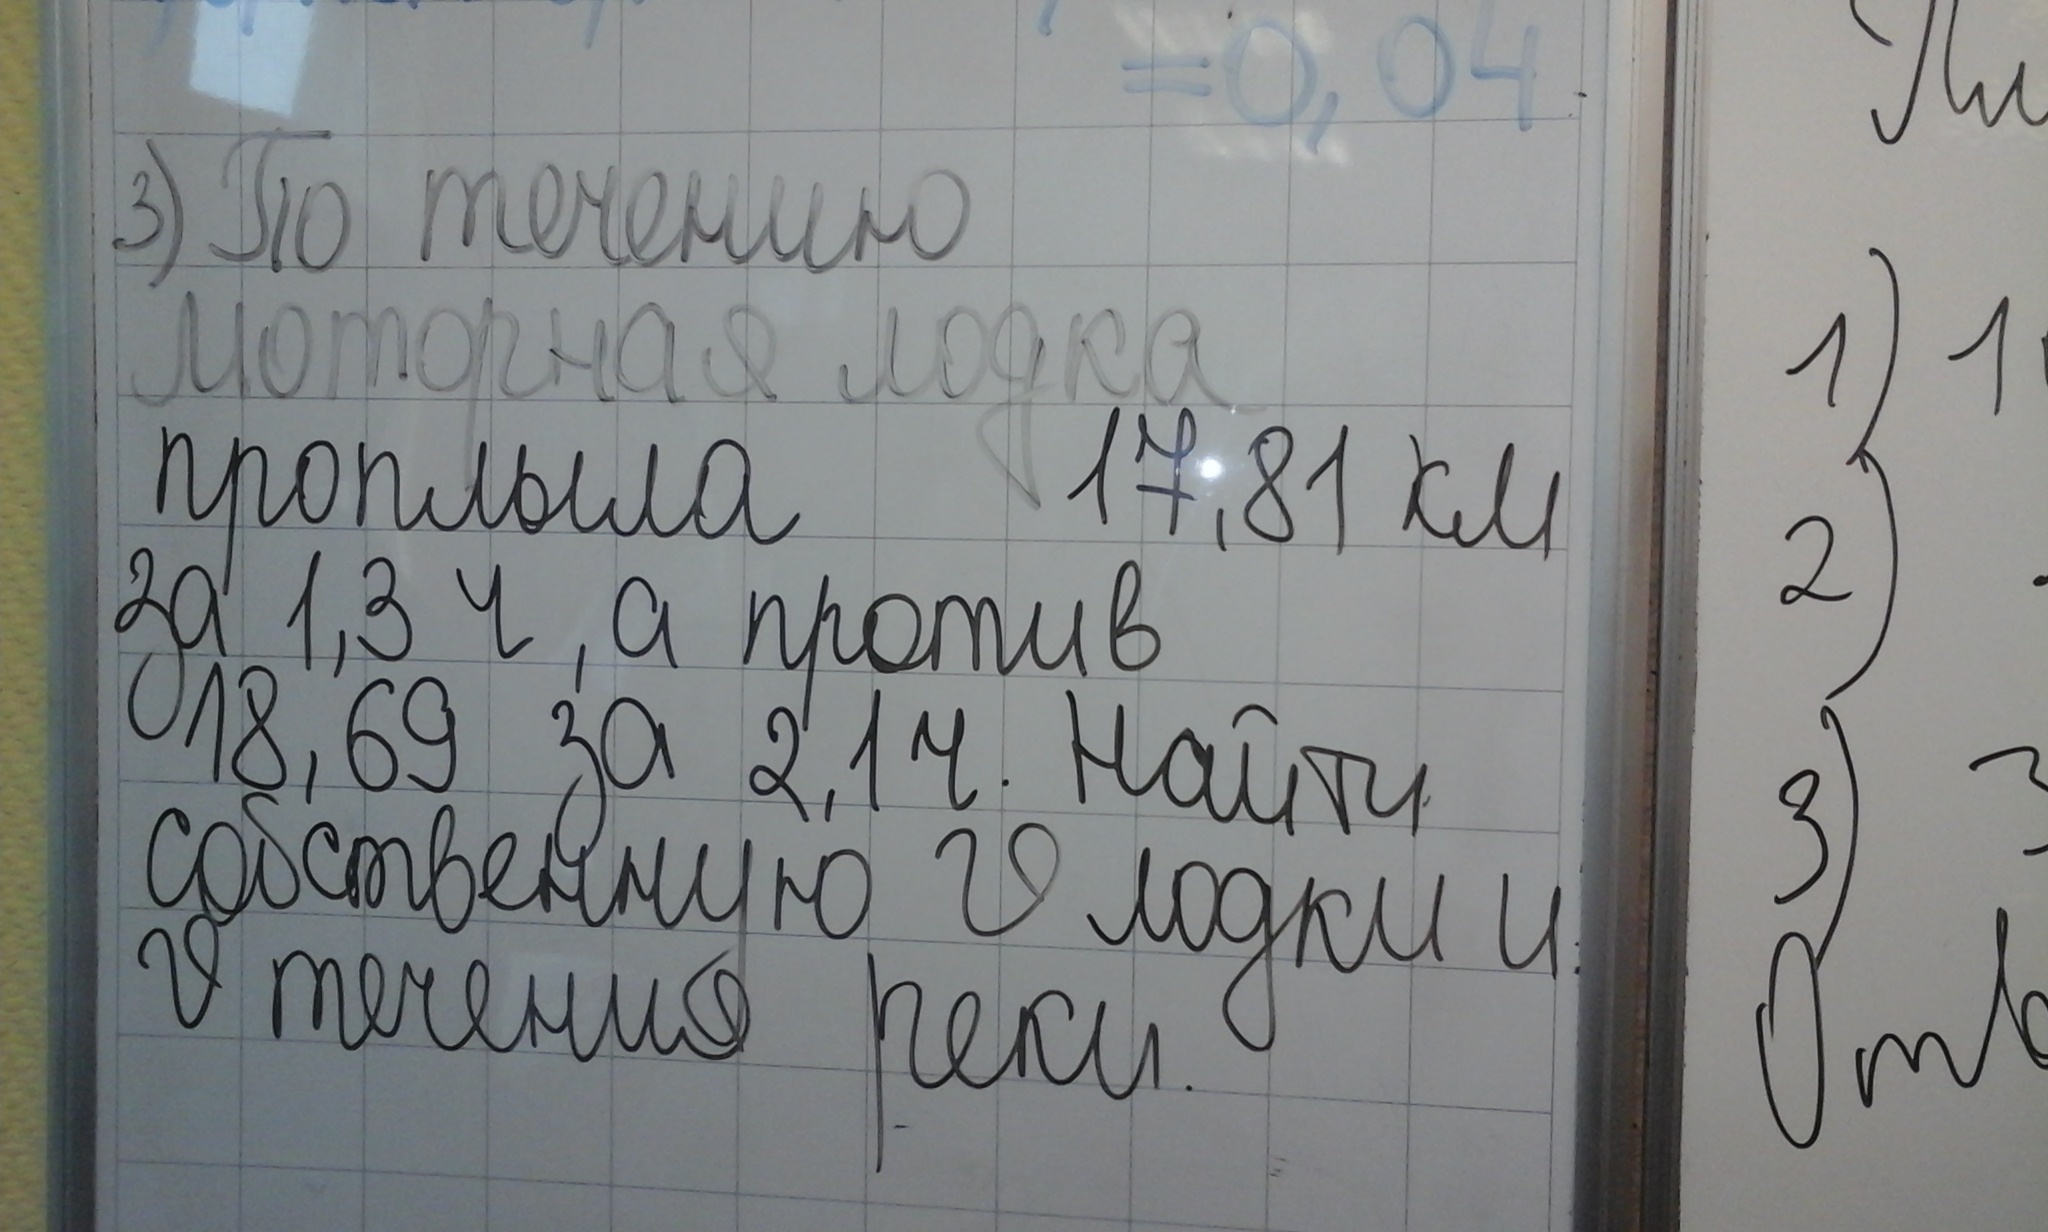 =0,04
3) По течению
моторная лодка
проплыла 17,81 км
за 1,3 ч, а против
18,69 за 2,1 ч. Найти
собственную v лодки и
v течения реки.
1) 1
2)
3) 3
Отв